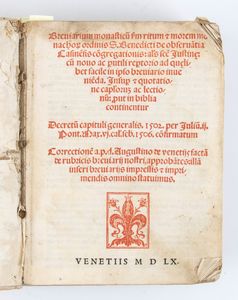 Breuiarium monasticũ scḋm ritum ⁊ morem mo
nachorũ ordinis S. Benedicti de obseruãtia
Casineñ. cõgregationis: als sctẽ Justinę:
cũ nouo ac putili reptorio ad queli-
bet facile in ipso breuiario inue
niẽda. Insup ⁊ quotatio-
ne capľorũ ac lectio-
nũ: put in biblia
continentur
Decretũ capituli generalis. 1502. per Juliũ. ij.
Pont. Max. vj. cal. feb. 1506. cõfirmatum
Correctionẽ a. p. d. Augustino de venetijs factã
de rubricis breuiarij nostri, approbãtes: illã
inseri breuiarijs impressis ⁊ impri-
mendis omnino statuimus.
VENETIIS M D LX.